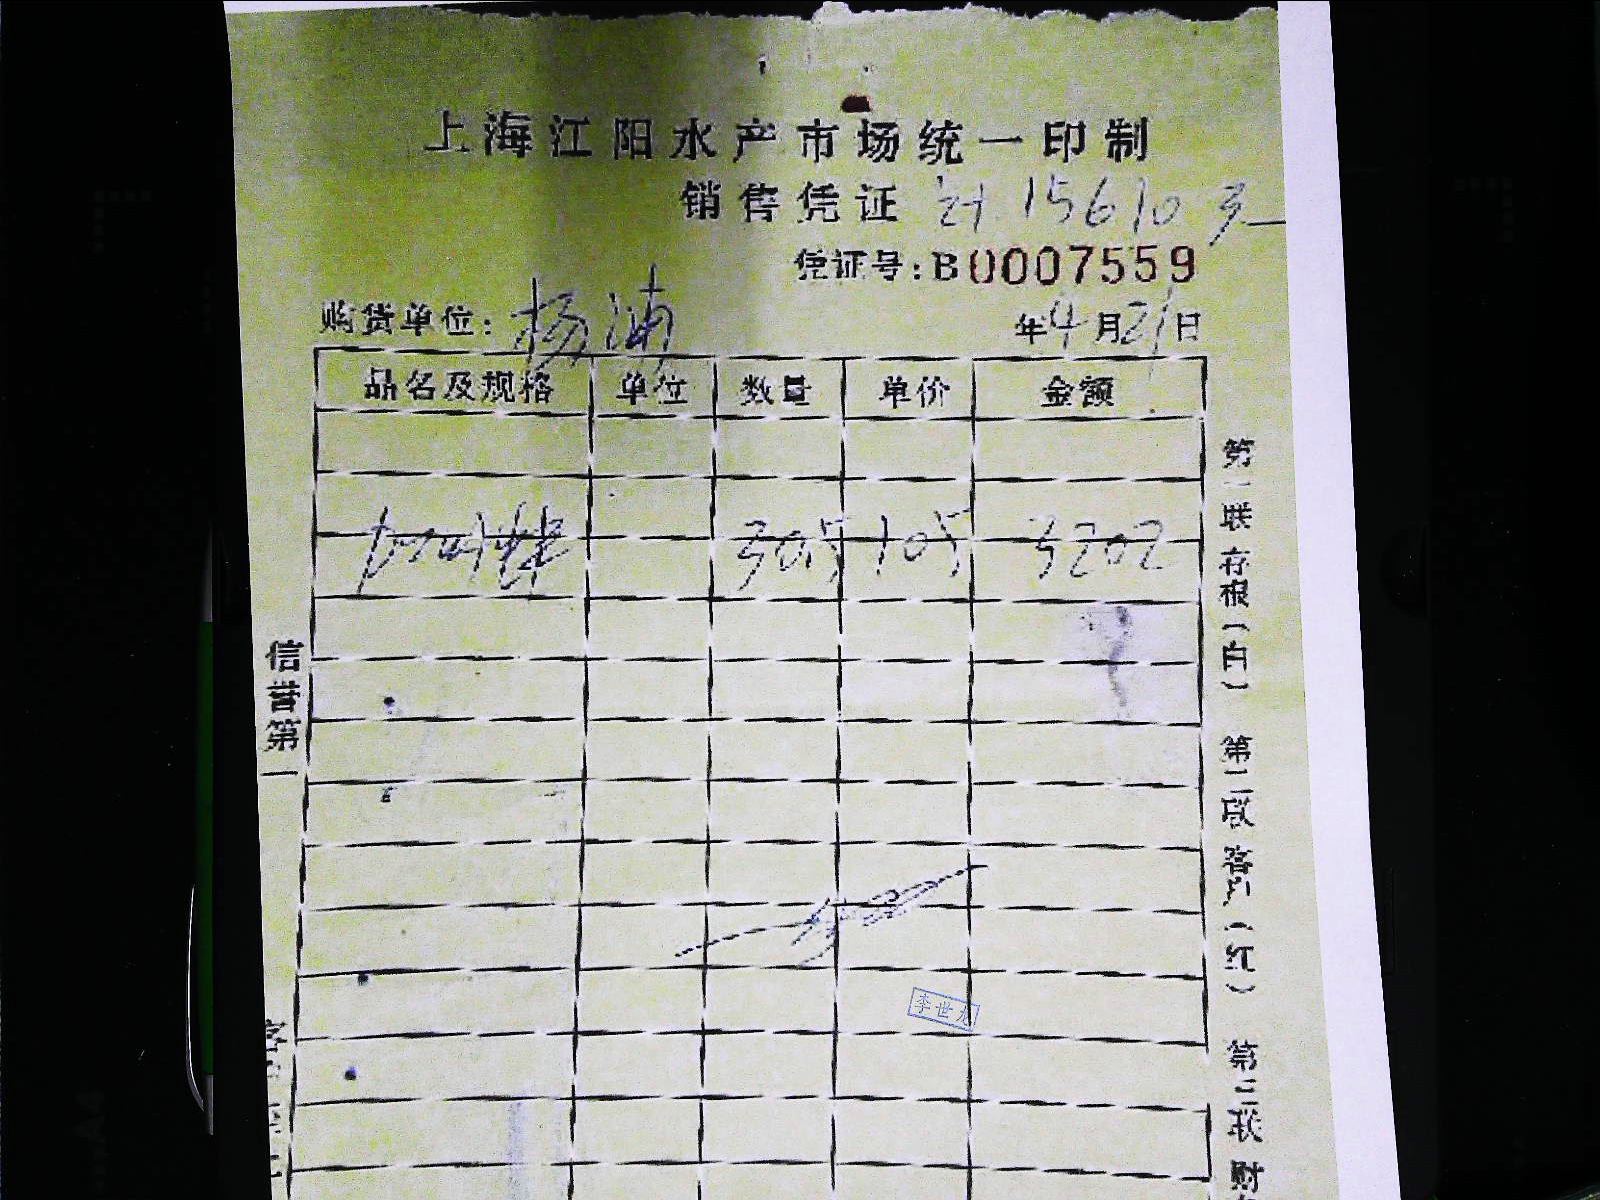 上海江阳水产市场统一印制
销售凭证 计 156103
凭证号:B0007559
购货单位: 杨浦 年4月21日
品名及规格 单位 数量 单价 金额
305 105 3202
李世龙
信誉第一
第一联存根(白) 第二联客户(红) 第三联财